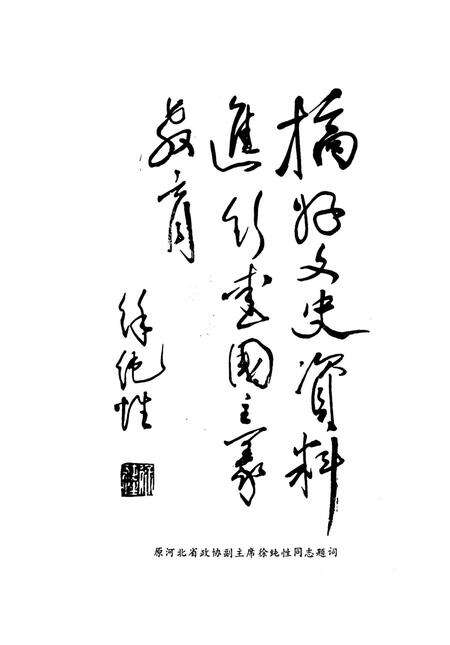 搞好文史資料
進行爱國主義
教育
徐纯性
原河北省政协副主席徐纯性同志题词